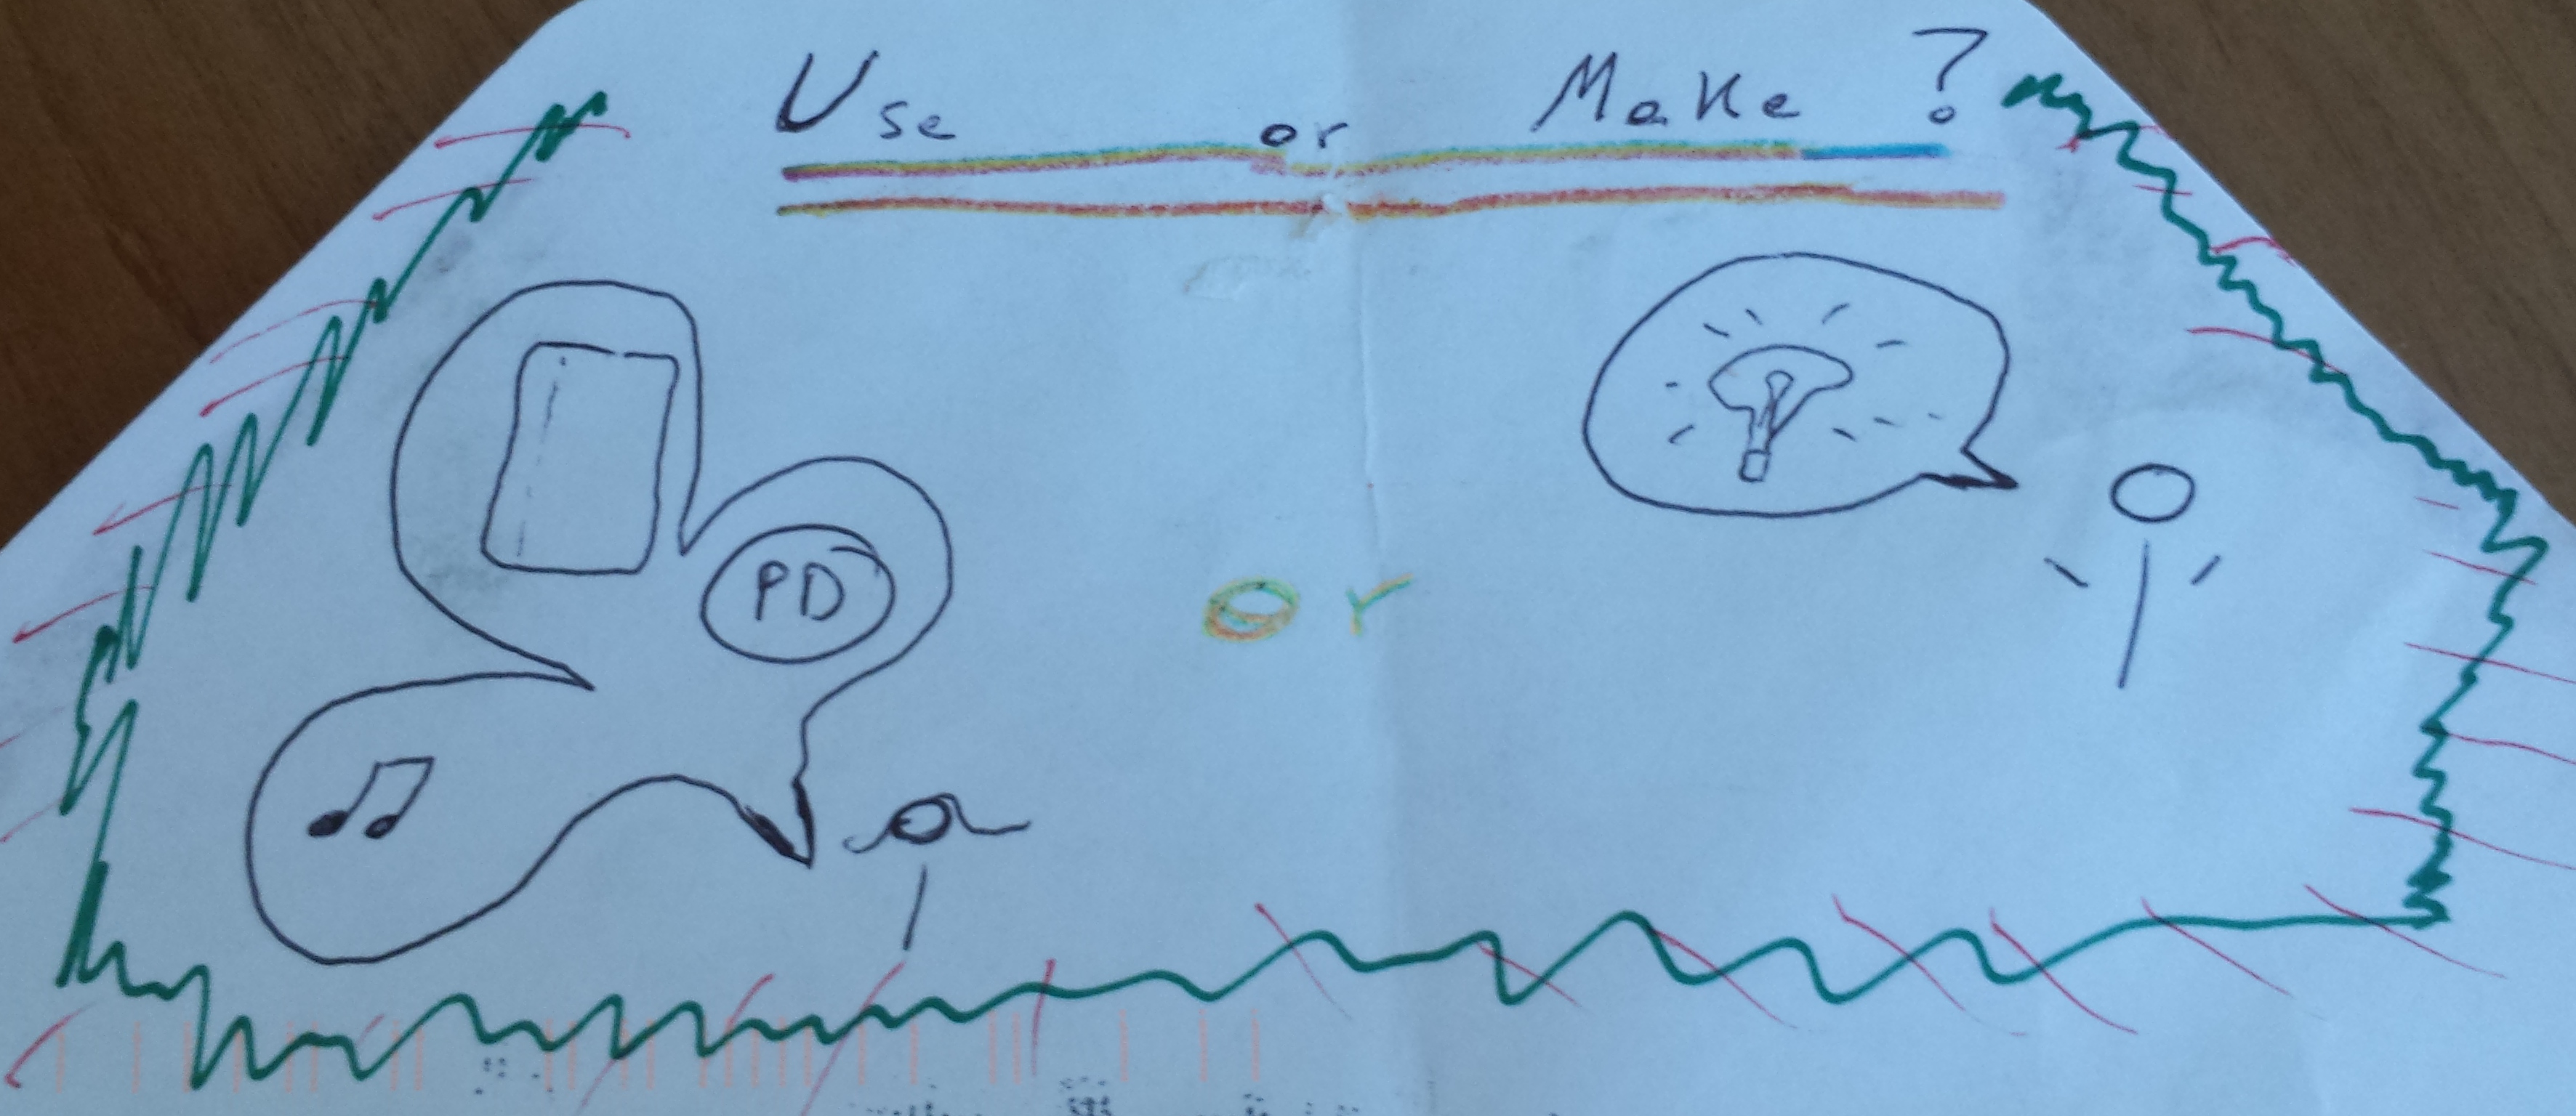 Use or Make ?
PD
or